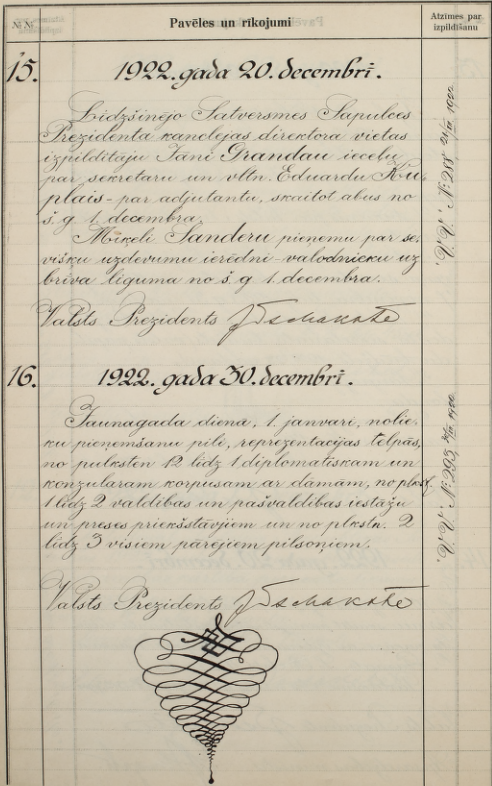 №№
Pavēles un rīkojumi
Atzīmes par
izpildīšanu
15.
1922. gada 20. decembrī.
Līdzšinējo Satversmes Sapulces
Prezidenta kancelejas direktora vietas
izpildītāju Jāni Grandau ieceļu
par sekretaru un vltn. Eduardu Ku-
plais - par adjutantu, skaitot abus no
š. g. 1. decembra.
Miķeli Sanderu pieņemu par se-
višķu uzdevumu ierēdni-valodnieku uz
brīva līguma no š. g. 1. decembra.
Valsts Prezidents
"V. V." № 288 21/XII 1922
16.
1922. gada 30. decembrī.
Jaunagada dienā, 1. janvarī, nolie-
ku pieņemšanu pilī, reprezentacijas telpās,
no pulksten 12 līdz 1 diplomatiskam un
konzularam korpusam ar dāmām, no plkst.
1 līdz 2 valdības un pašvaldības iestāžu
un preses priekšstāvjiem un no plkstn. 2
līdz 3 visiem pārējiem pilsoņiem.
Valsts Prezidents
"V. V." № 295 30/XII 1922